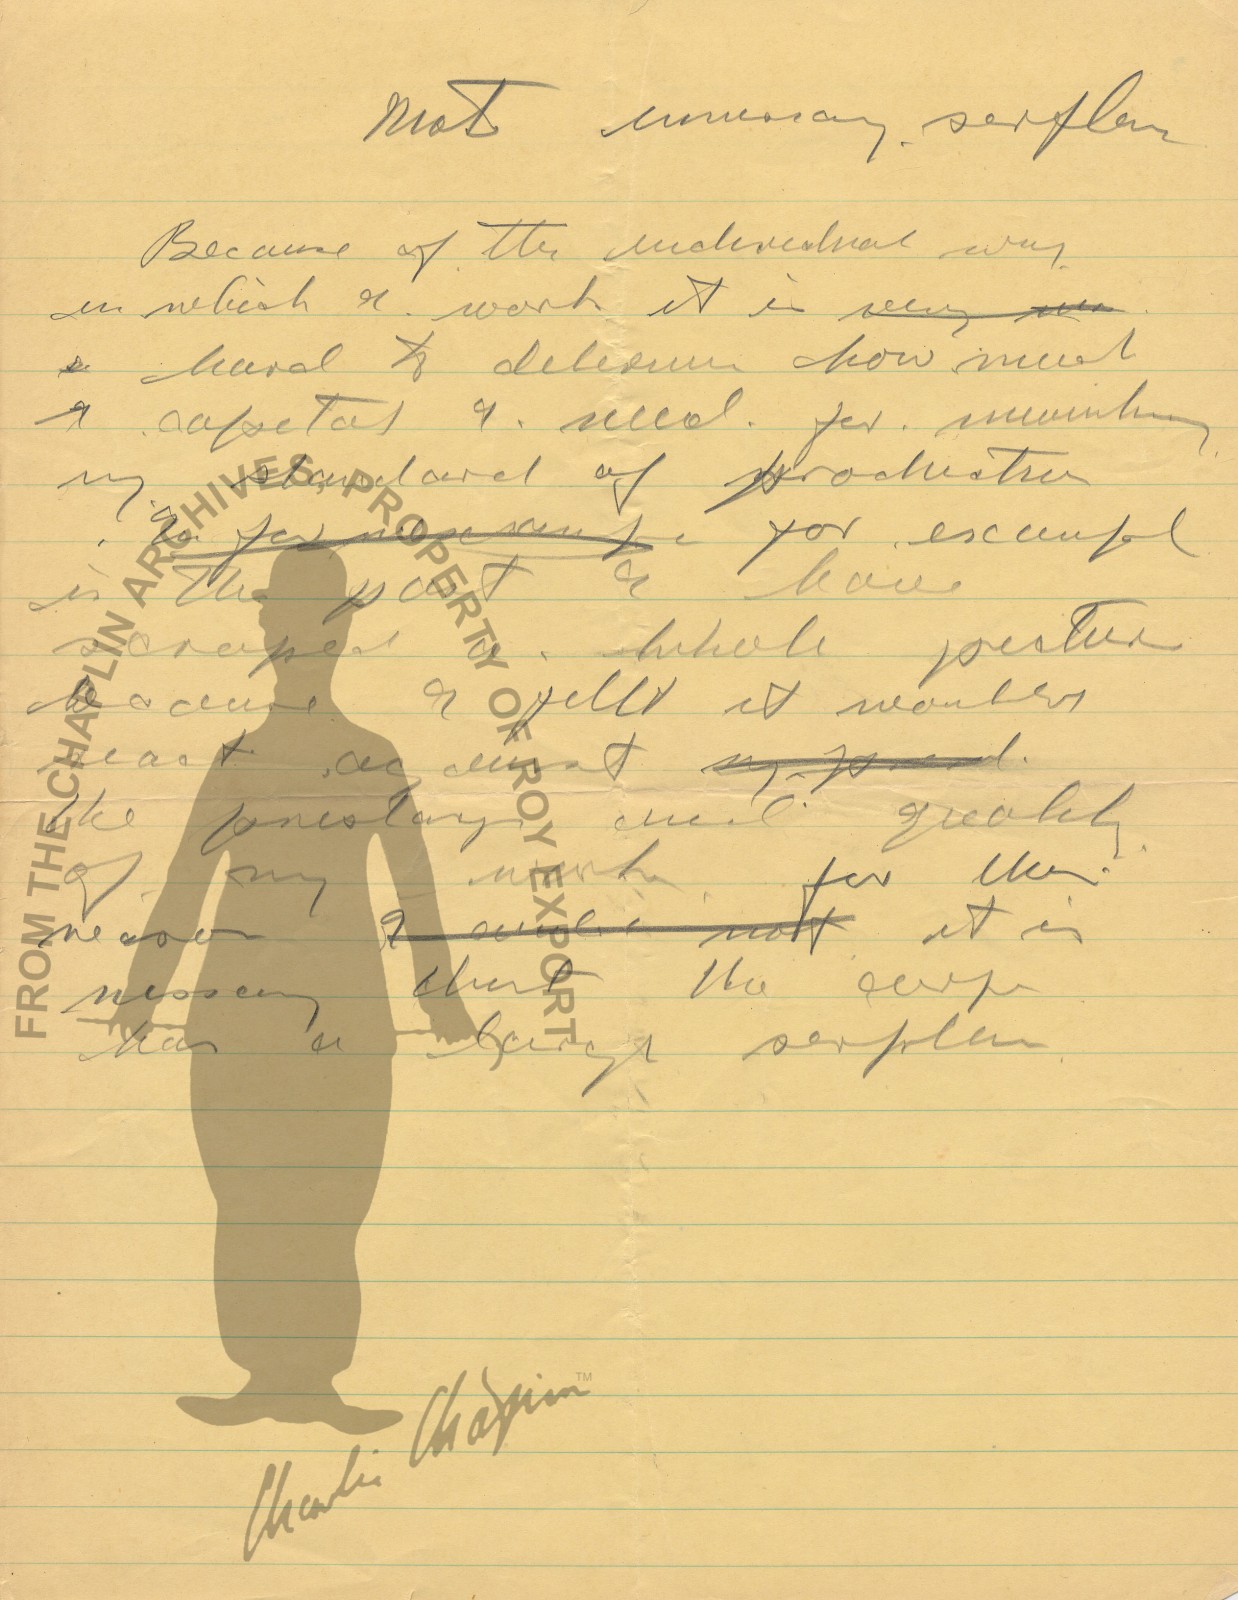 Not unnessary serplan
Because of the individual way
in which I work it is very
hard to determin how much
capetal I need for
my standard of production
for exampl
in the past I have
scraped a whole picture
because I fellt it
against
the prestage and quality
of my work. for
reason it is
nessary that the corp
has a large serplan
FROM THE CHAPLIN ARCHIVES, PROPERTY OF ROY EXPORT
Charlie Chaplin™